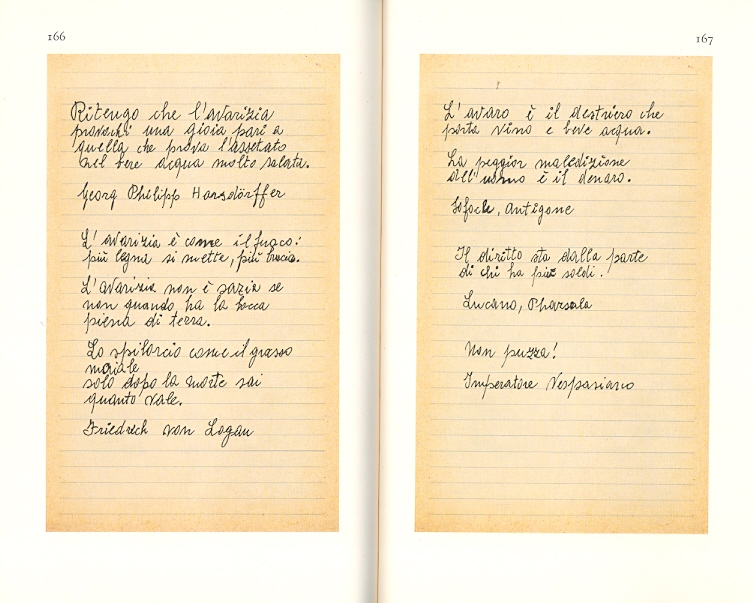 166
Ritengo che l'avarizia
provochi una gioia pari a
quella che prova l'assetato
nel bere acqua molto salata.
Georg Philipp Harsdörffer
L'avarizia è come il fuoco:
più legna si mette, più brucia.
L'avarizia non è sazia se
non quando ha la bocca
piena di terra.
Lo spilorcio come il grasso
maiale
solo dopo la morte sai
quanto vale.
Friedrich von Logau
167
L'avaro è il destriero che
porta vino e beve acqua.
La peggior maledizione
dell'uomo è il denaro.
Sofocle, Antigone
Il diritto sta dalla parte
di chi ha più soldi.
Lucano, Pharsala
Non puzza!
Imperatore Vespasiano